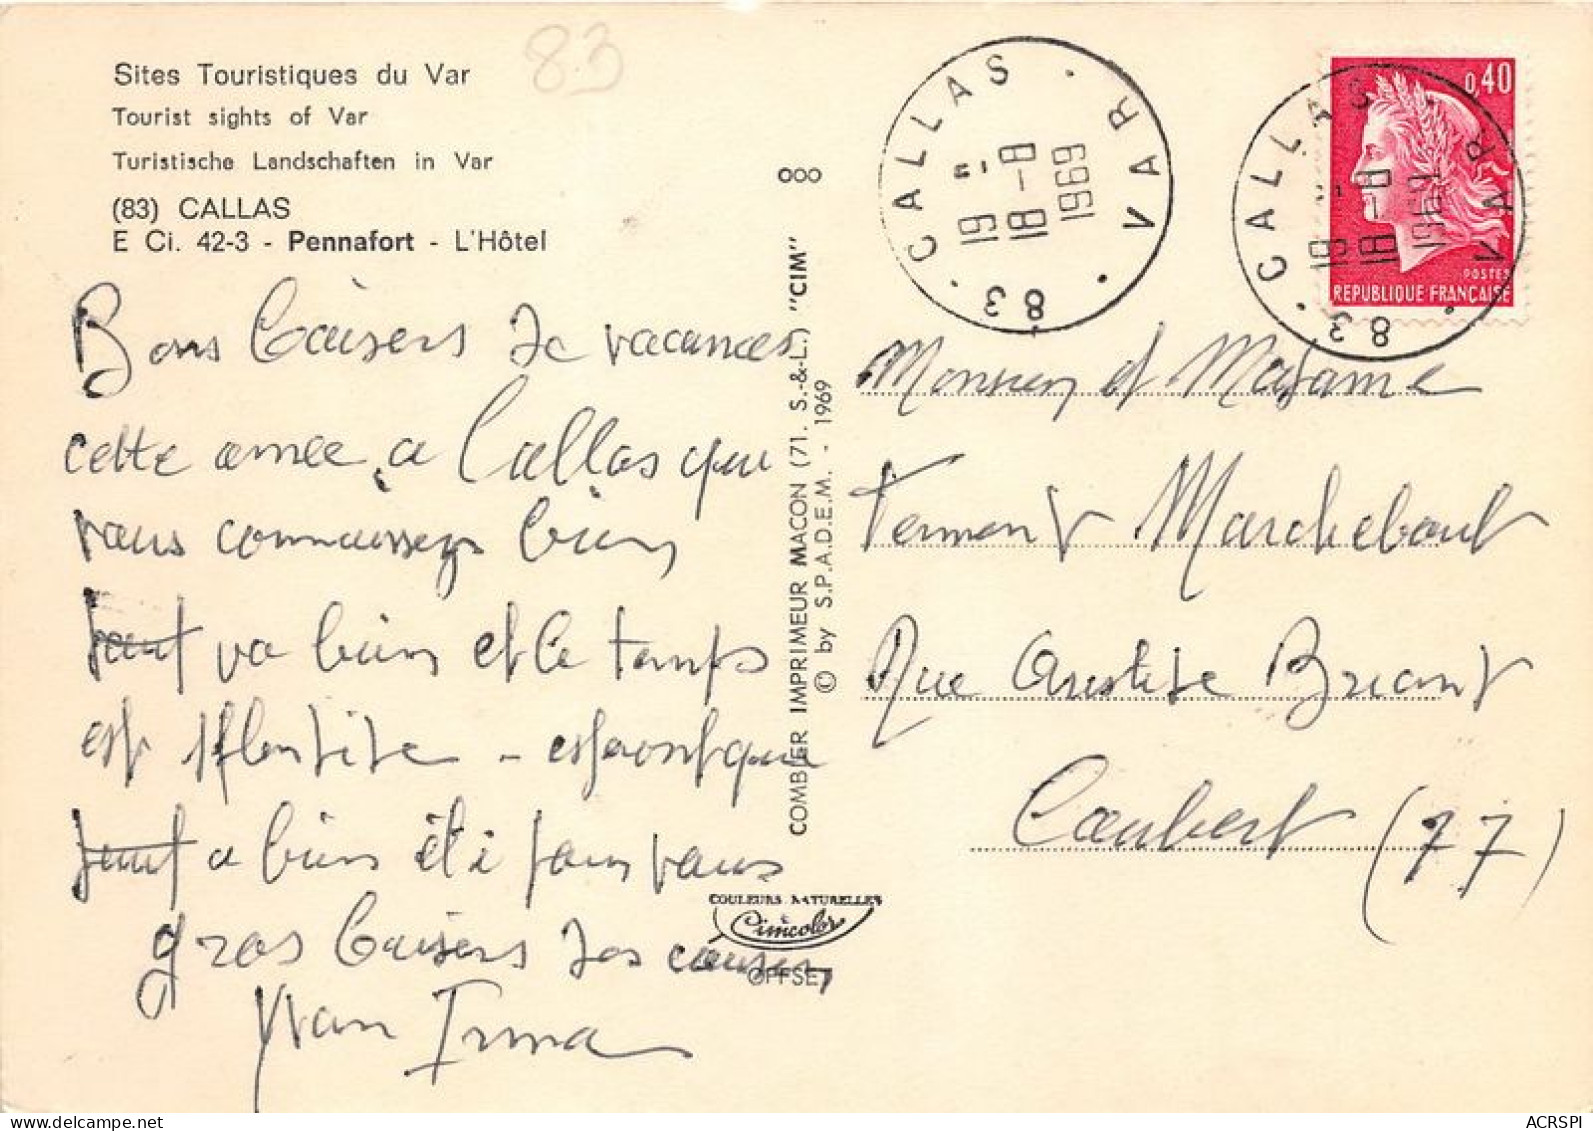 83
Sites Touristiques du Var
Tourist sights of Var
Turistische Landschaften in Var
(83) CALLAS
E Ci. 42-3 - Pennafort - L'Hôtel
Bons baisers de vacances
cette année a Callas que
vous connaissez bien
tout va bien et le temps
est splendide - esperont que
tout a bien été pour vous
gros baisers des cousins
Yvan Irma
COMBIER IMPRIMEUR MACON (71. S.-&-L.) "CIM"
© by S.P.A.D.E.M. - 1969
COULEURS NATURELLES
Cimcolor
OFFSET
83 · CALLAS · VAR ·
19
18-8
1969
83 · CALLAS · VAR ·
19
18-8
1969
0,40
POSTES
REPUBLIQUE FRANÇAISE
Monsieur et Madame
Marchebout
Rue Aristide Briant
Coubert (77)
ACRSPI